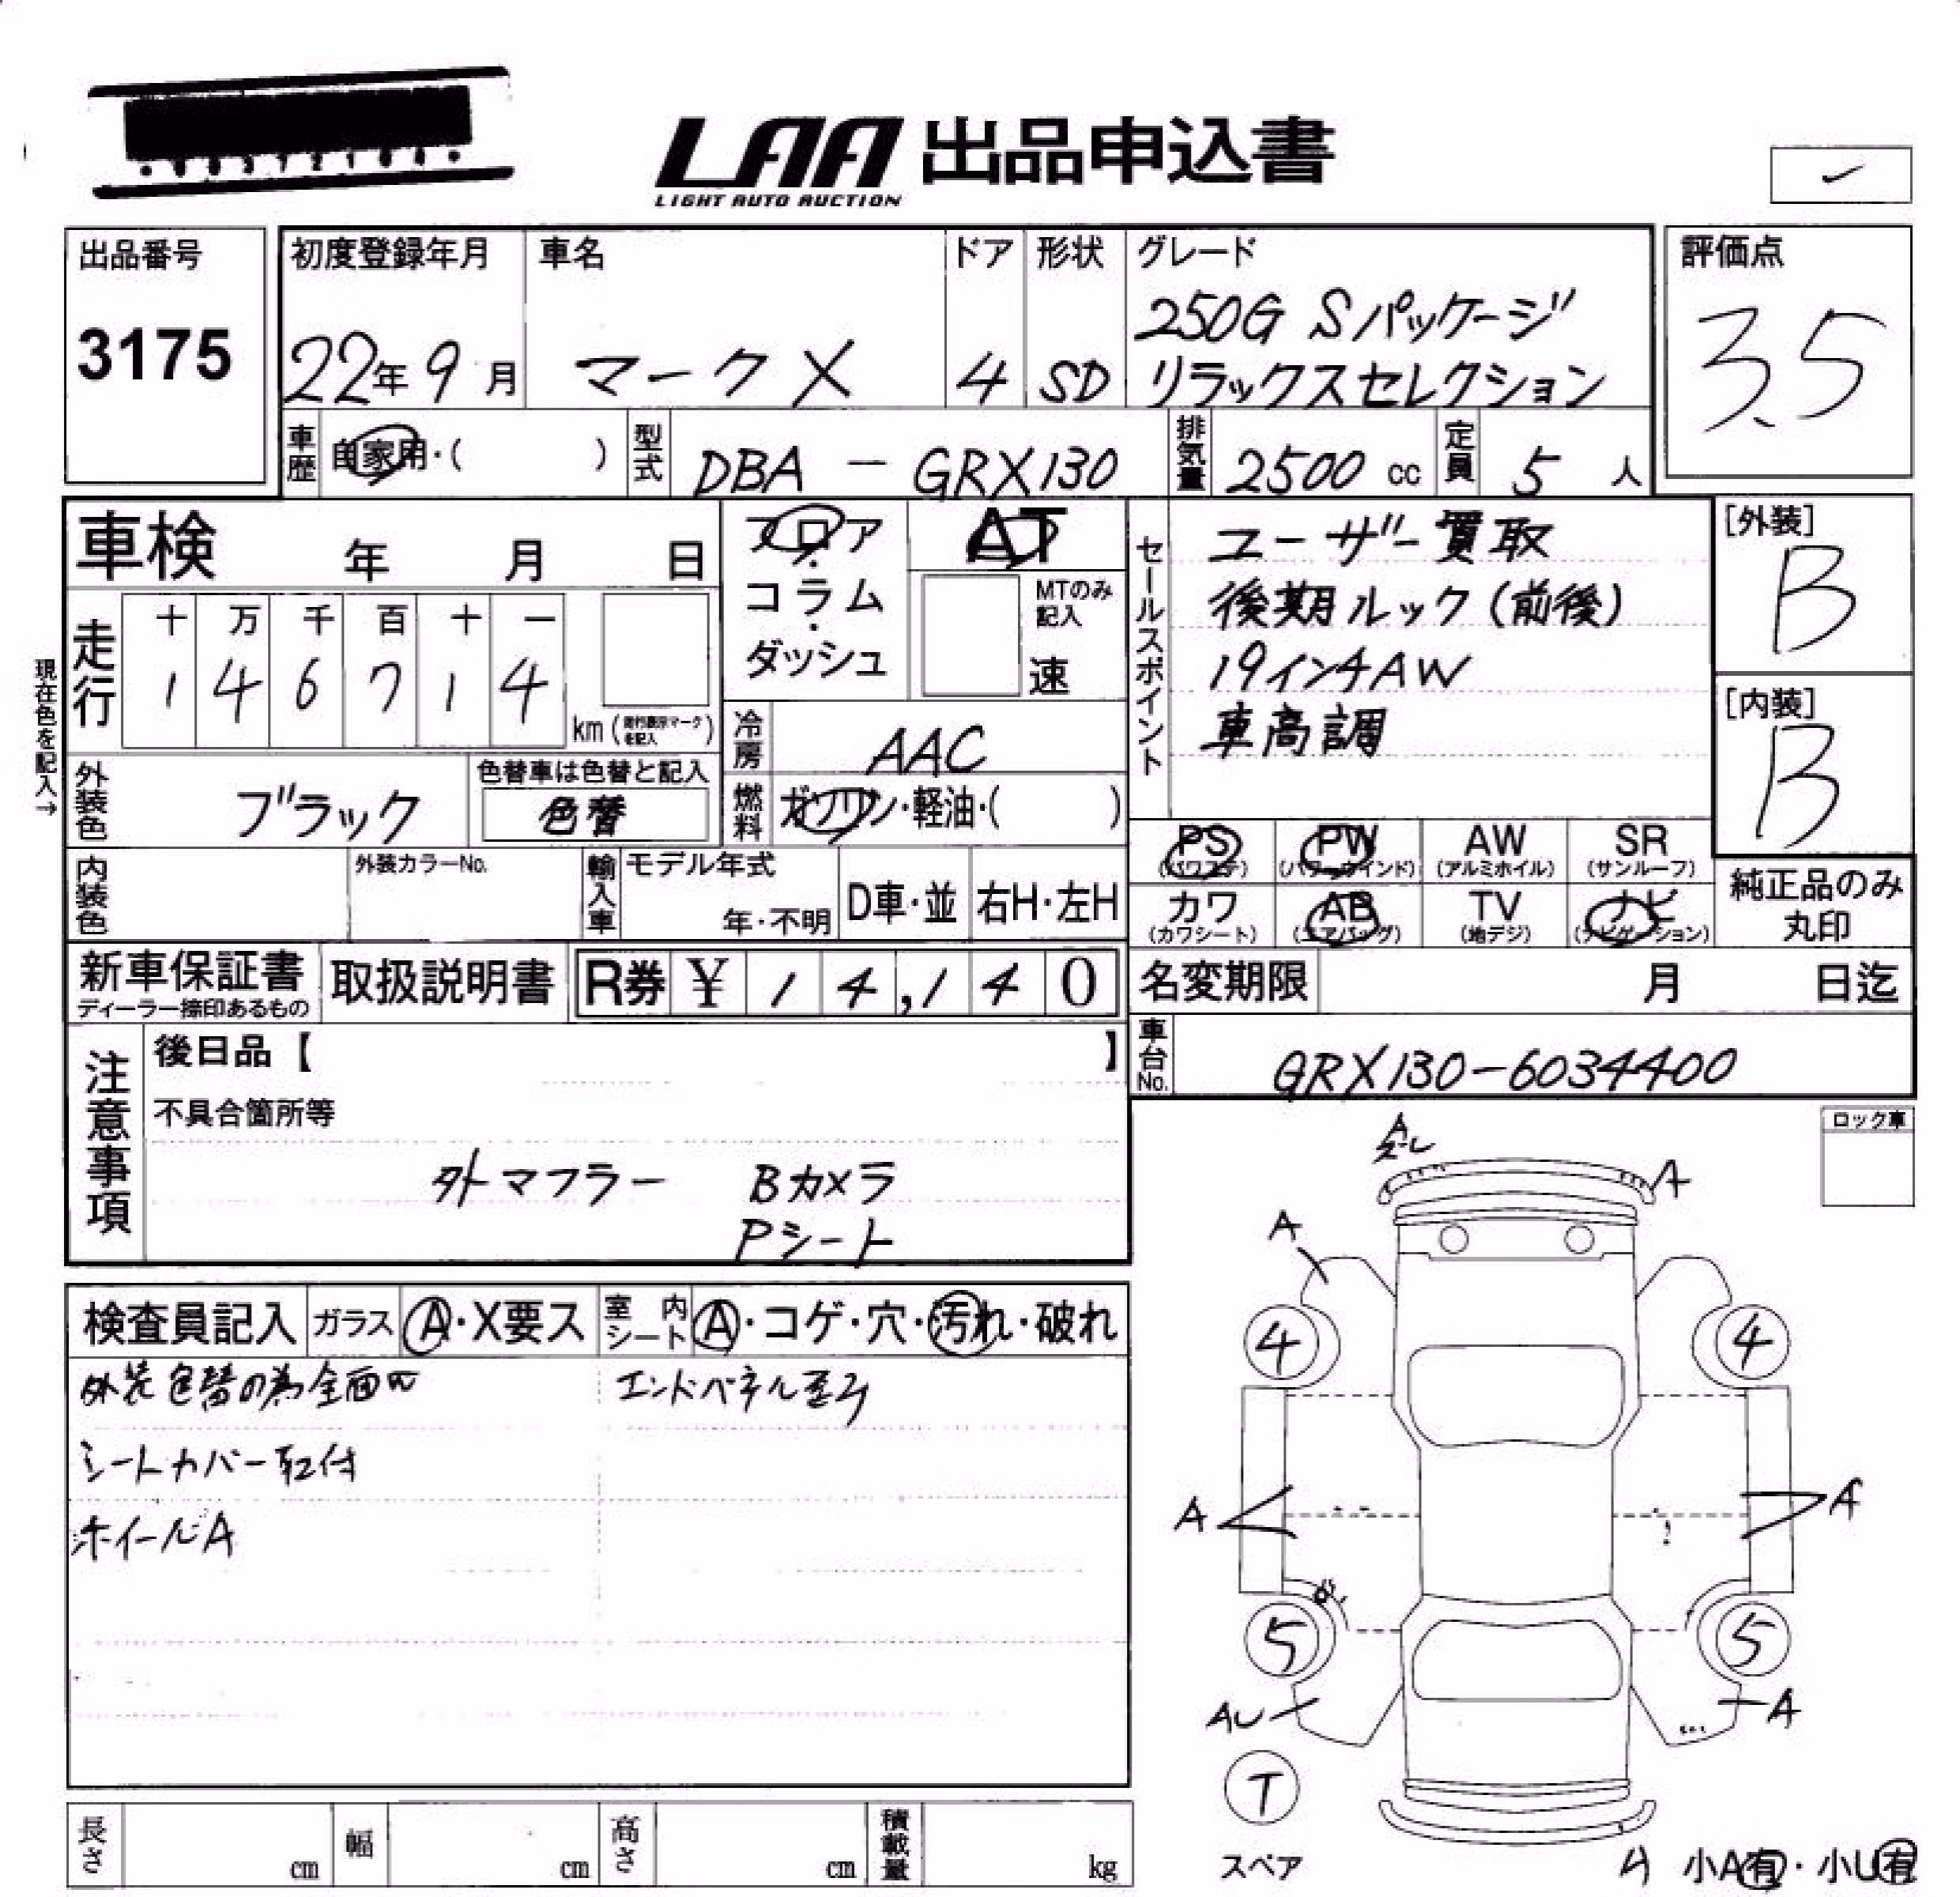 LAA 出品申込書
LIGHT AUTO AUCTION
出品番号
3175
初度登録年月
22年9月
車名
マークX
ドア
4
形状
SD
グレード
250G Sパッケージ
リラックスセレクション
評価点
3.5
車歴 自家用・( )
型式 DBA - GRX130
排気量 2500 cc
定員 5 人
車検 年 月 日
フロア・コラム・ダッシュ
AT
MTのみ記入
速
セールスポイント
ユーザー買取
後期ルック(前後)
19インチAW
車高調
[外装]
B
[内装]
B
現在色を記入→
走行
十 万 千 百 十 一
1 4 6 7 1 4
km(走行表示マークを記入)
冷房 AAC
外装色 ブラック
色替車は色替と記入
色替
燃料 ガソリン・軽油・( )
内装色
外装カラーNo.
輸入車
モデル年式
年・不明
D車・並
右H・左H
PS (パワステ)
PW (パワーウインド)
AW (アルミホイル)
SR (サンルーフ)
カワ (カワシート)
AB (エアバッグ)
TV (地デジ)
ナビ (ナビゲーション)
純正品のみ
丸印
新車保証書
ディーラー捺印あるもの
取扱説明書
R券 ¥ 14,140
名変期限 月 日迄
車台No. GRX130-6034400
注意事項
後日品【 】
不具合箇所等
外マフラー Bカメラ
Pシート
ロック車
検査員記入
ガラス A・X要ス
室内シート A・コゲ・穴・汚れ・破れ
外装色替の為全面W
エンドパネル歪み
シートカバー取付
ホイールA
A
A
A
4
4
A
A
5
5
AU
A
T
スペア
小A有・小U有
長さ cm
幅 cm
高さ cm
積載量 kg